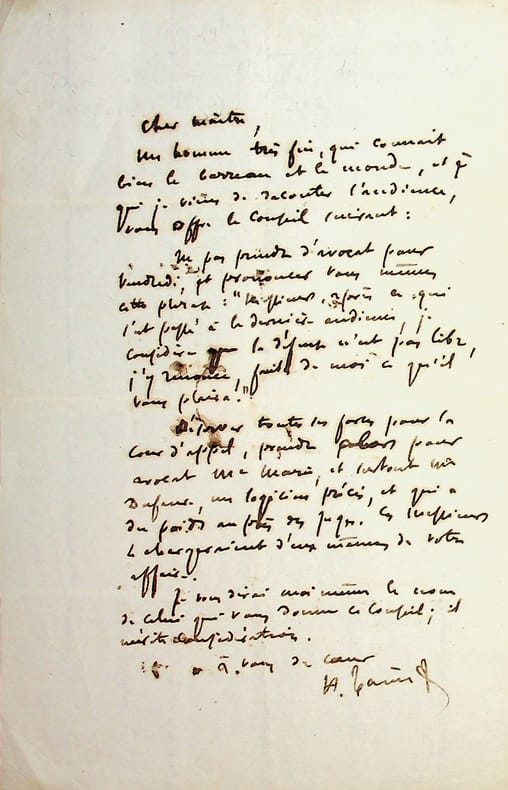 Cher maître,
Un homme très fin, qui connait
bien le barreau et le monde, et à
qui je viens de raconter l'audience,
vous offre le conseil suivant :
Ne pas prendre d'avocat pour
vendredi, et prononcer vous même
cette phrase : "Messieurs, après ce qui
s'est passé à la dernière audience, je
considère que la défense n'est pas libre,
j'y renonce, faites de moi ce qu'il
vous plaira."
Réserver toutes ses forces pour la
cour d'appel, prendre alors pour
avocat Me Marie, et surtout Me
Dufaure, un logicien précis, et qui a
du poids auprès des juges. Ces messieurs
se chargeraient d'eux mêmes de votre
affaire.
Je vous dirai moi même le nom
de celui qui vous donne ce conseil ; il
mérite considération.
à vous de cœur
H. Taine